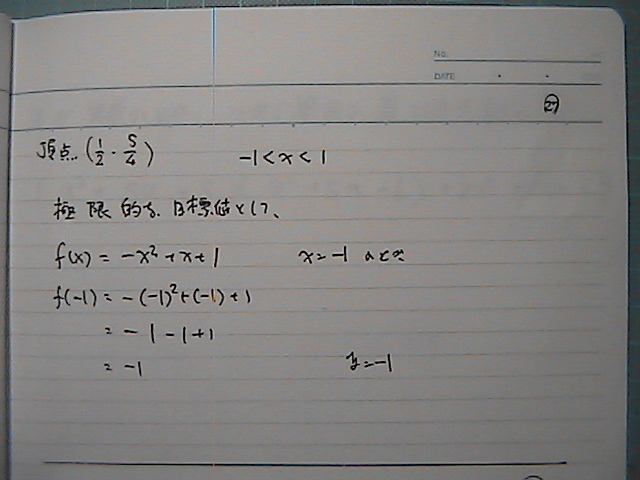 No.
DATE ・ ・
㉗
頂点 (1/2, 5/4) -1<x<1
極限的な目標値として、
f(x) = -x²+x+1 x=-1 のとき
f(-1) = -(-1)²+(-1)+1
= -1-1+1
= -1 y=-1